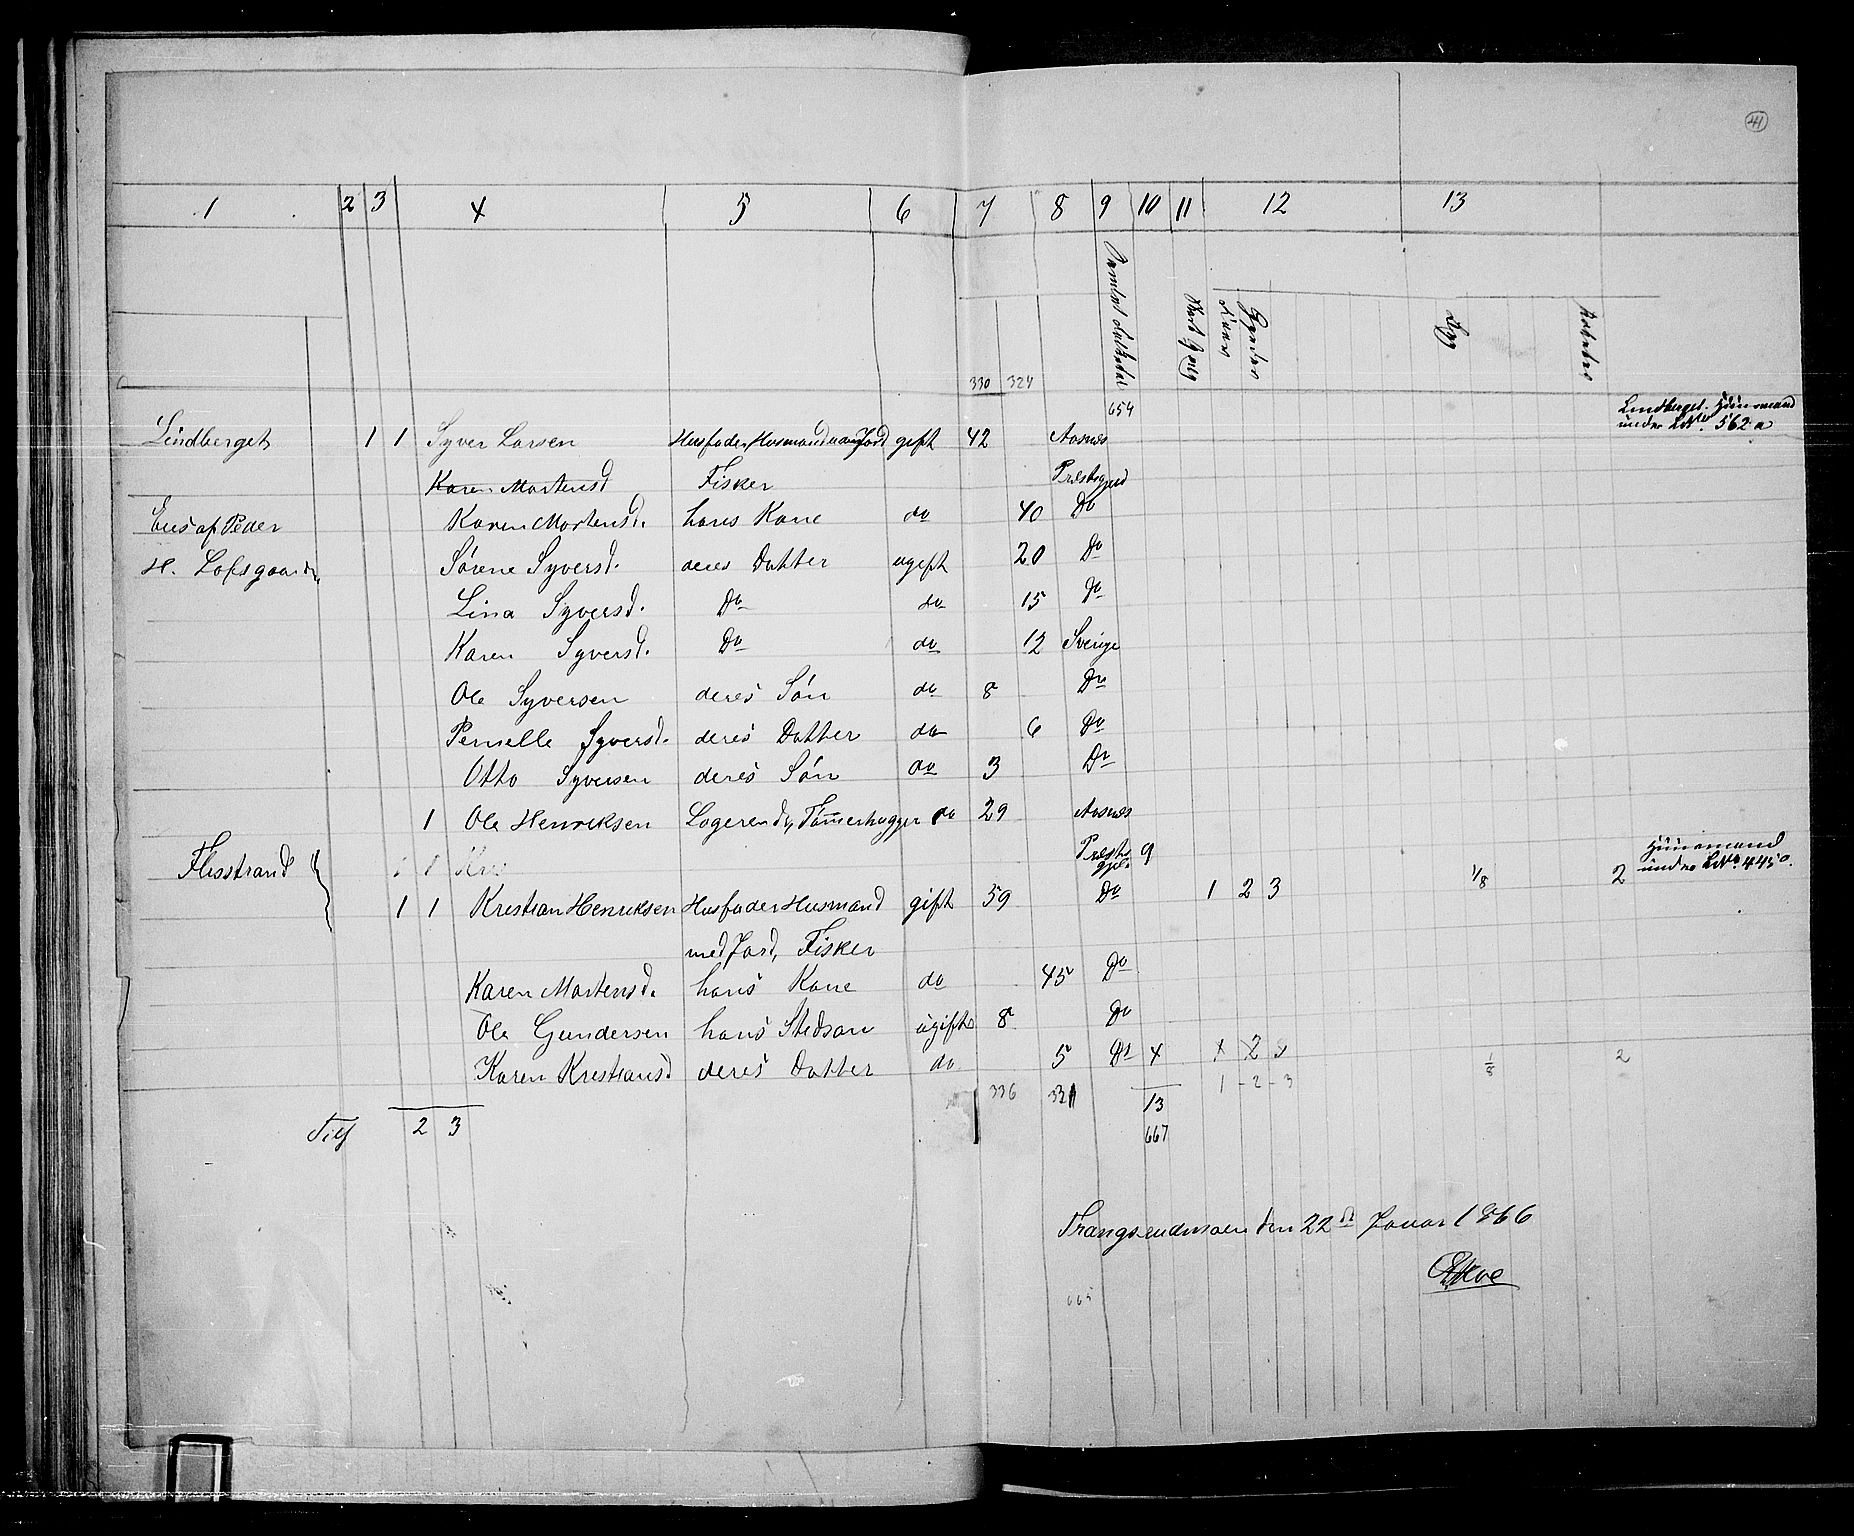 41
1 2 3 4 5 6 7 8 9 10 11 12 13
Kiøer
Byg
330 324
654
Lindberget 1 1 Syver Larsen Husfader Husmand uden Jord gift 42 Aasnes
Lindberget. Huusmand
under LNo. 562a
Karen Mortensd Fisker Præstegjeld
Eies af Peder Karen Mortensd. hans Kone do 40 Do
H. Lofsgaarden Sørene Syversd. deres Datter ugift 20 Do
Lina Syversd. Do do 15 Do
Karen Syversd. Do do 12 Sverige
Ole Syversen deres Søn do 8 Do
Pernelle Syversd. deres Datter do 6 Do
Otto Syversen deres Søn do 3 Do
1 Ole Henriksen Logerende, Tømmerhugger do 29 Aasnes
Flisstrand 1 1 Præste 9
gjeld
Huusmand
under LNo. 445
1 1 Kristian Henriksen Husfader Husmand gift 59 Do 1 2 3 1/8 2
med Jord, Fisker
Karen Mortensd. hans Kone do 45 Do
Ole Gundersen hans Stedsøn ugift 8 Do
Karen Kristiansd deres Datter do 5 Do 4 1 2 3 1/8 2
336 331 13 1 - 2 - 3
Tils 2 3 667
den 22de Januar 1866
665